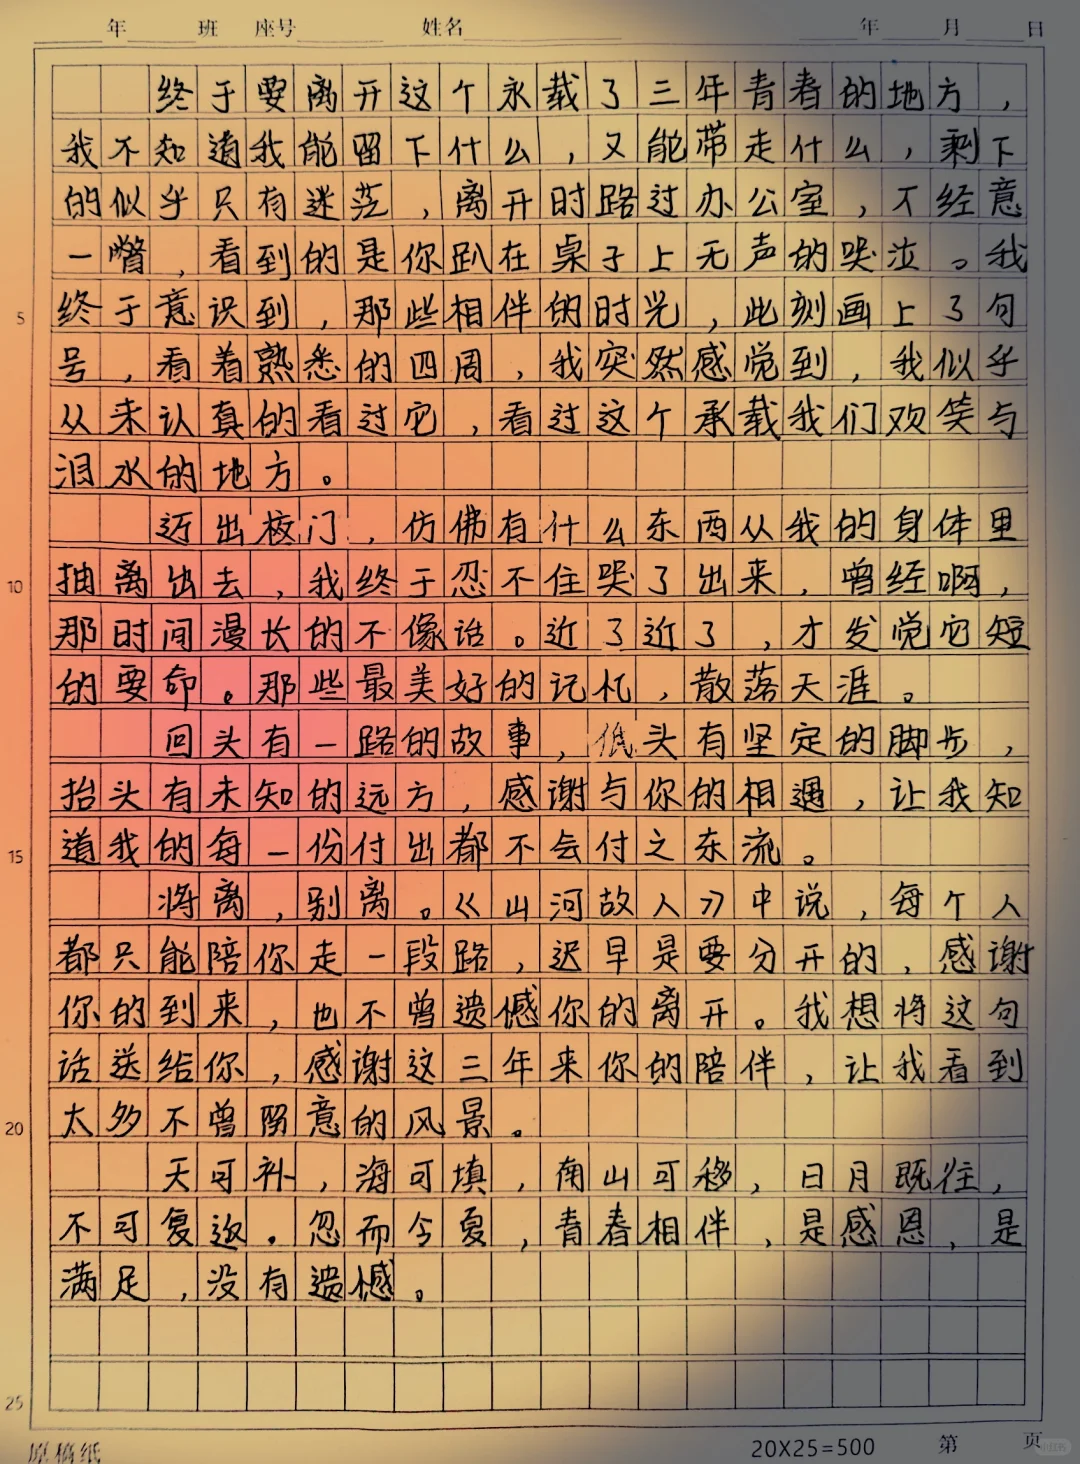 年 班 座号 姓名 年 月 日
终于要离开这个永载了三年青春的地方，
我不知道我能留下什么，又能带走什么，剩下
的似乎只有迷茫，离开时路过办公室，不经意
一瞥，看到的是你趴在桌子上无声的哭泣。我
5 终于意识到，那些相伴的时光，此刻画上了句
号，看着熟悉的四周，我突然感觉到，我似乎
从未认真的看过它，看过这个承载我们欢笑与
泪水的地方。
迈出校门，仿佛有什么东西从我的身体里
10 抽离出去，我终于忍不住哭了出来，曾经啊，
那时间漫长的不像话。近了近了，才发觉它短
的要命。那些最美好的记忆，散落天涯。
回头有一路的故事，低头有坚定的脚步，
抬头有未知的远方，感谢与你的相遇，让我知
15 道我的每一份付出都不会付之东流。
将离，别离。《山河故人》中说，每个人
都只能陪你走一段路，迟早是要分开的，感谢
你的到来，也不曾遗憾你的离开。我想将这句
话送给你，感谢这三年来你的陪伴，让我看到
20 太多不曾留意的风景。
天可补，海可填，南山可移，日月既往，
不可复追。忽而今夏，青春相伴，是感恩，是
满足，没有遗憾。
25
原稿纸 20X25=500 第 页
小红书